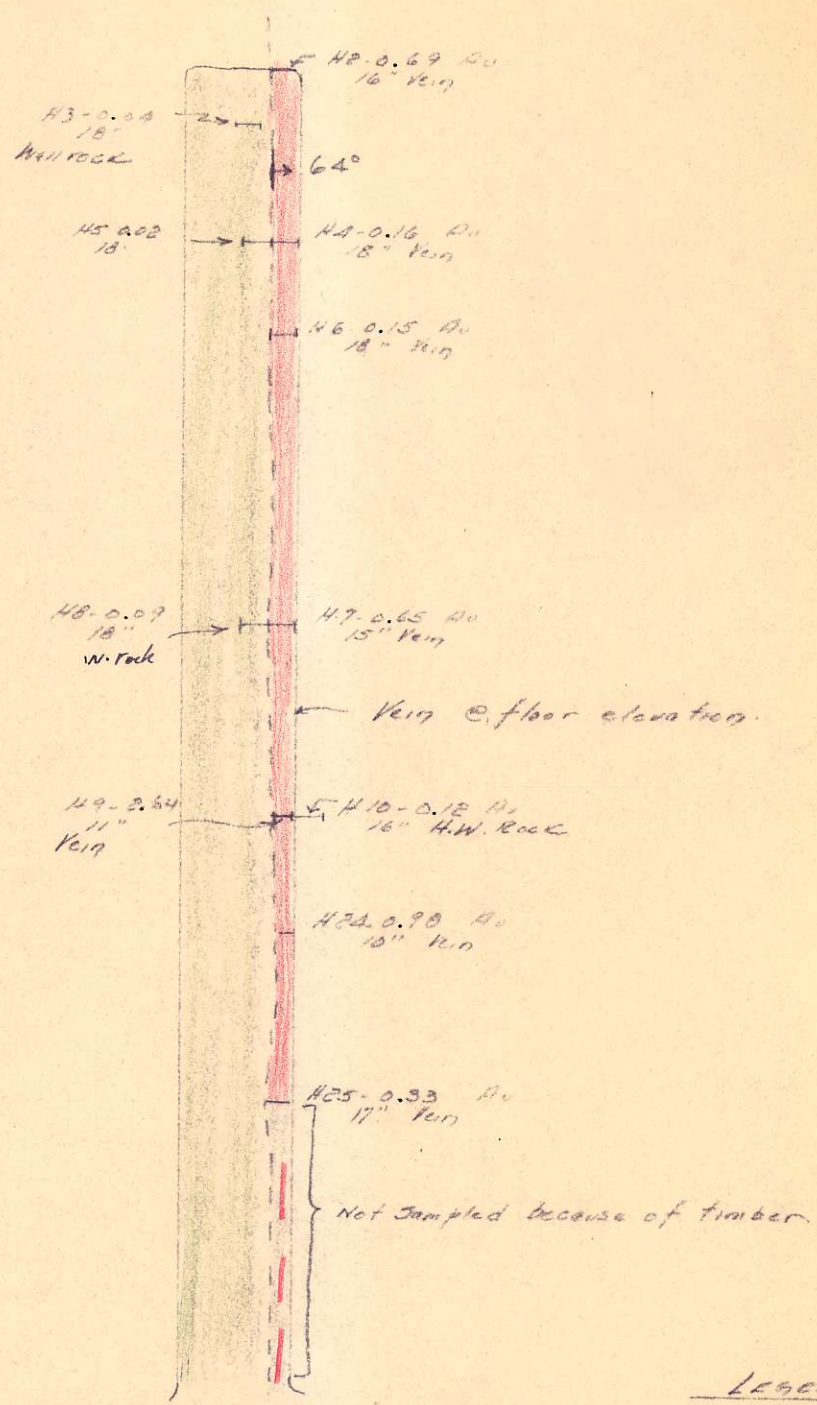 H2-0.69 Au
16" Vein
H3-0.04
18"
Wall rock
64°
H5 0.02
18"
H4-0.16 Au
18" Vein
H6-0.15 Au
18" Vein
H8-0.09
18"
W. rock
H7-0.65 Au
15" Vein
Vein @ floor elevation.
H9-
11"
Vein
H10-0.12 Au
16" H.W. Rock
H24-0.90 Au
10" Vein
H25-0.33 Au
17" Vein
Not Sampled because of timber.